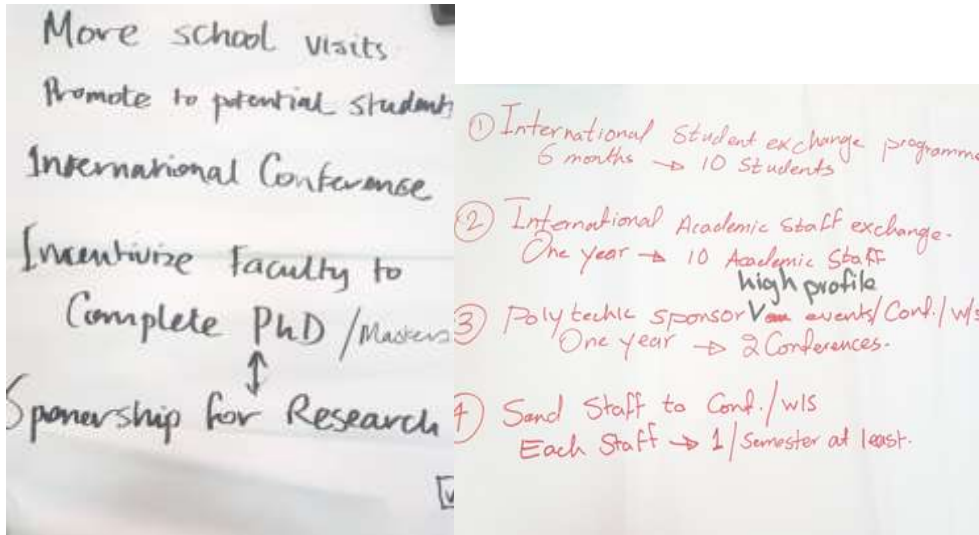 More school visits
Promote to potential students
International Conference
Incentivize Faculty to
Complete PhD / Masters
Sponership for Research
① International Student exchange programme
6 months → 10 Students
② International Academic Staff exchange.
One year → 10 Academic Staff
high profile
③ Polytechic sponsor V events/Conf./w/s
One year → 2 Conferences.
④ Send Staff to Conf./w/s
Each Staff → 1/Semester at least.